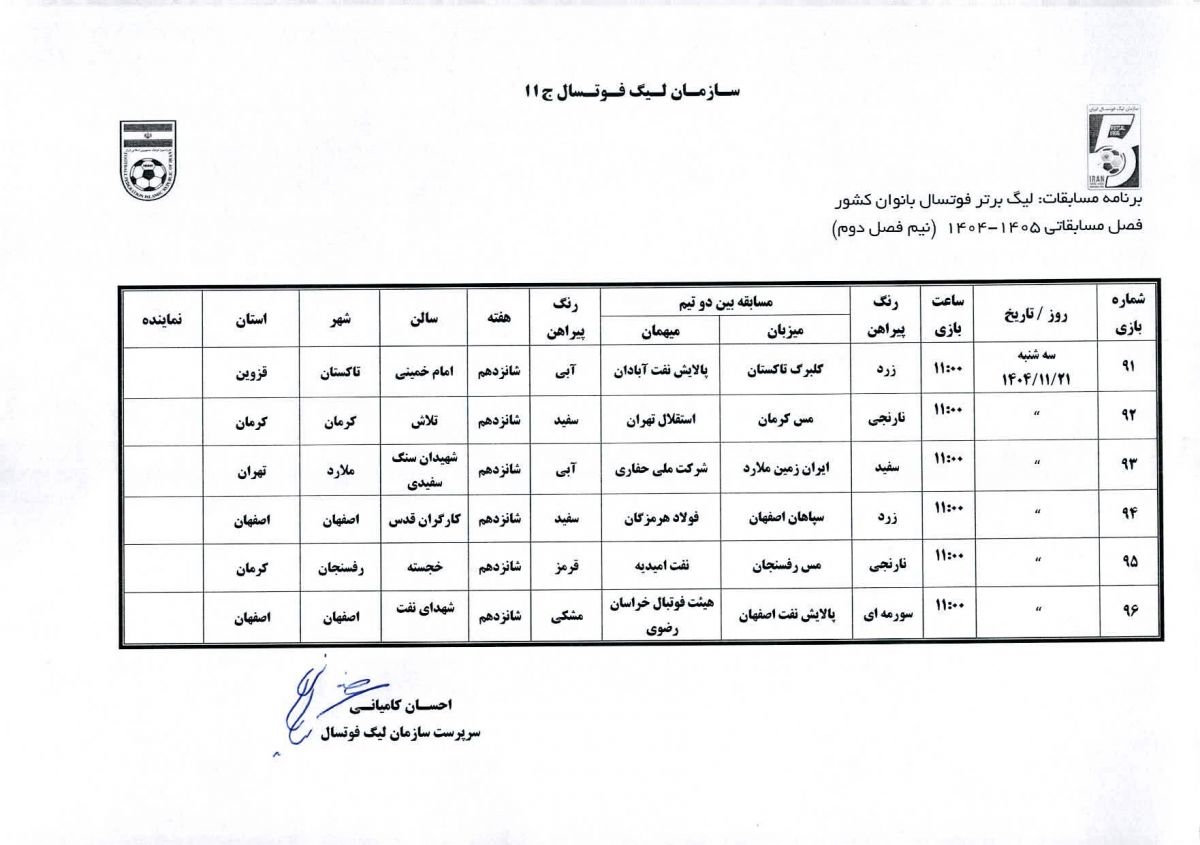 سازمان لیگ فوتسال ج ۱ ا
سازمان لیگ فوتسال ایران
IRAN
FOOTBALL FEDERATION ISLAMIC REPUBLIC OF IRAN
برنامه مسابقات: لیگ برتر فوتسال بانوان کشور
فصل مسابقاتی ۱۴۰۵-۱۴۰۴ (نیم فصل دوم)
شماره بازی | روز / تاریخ | ساعت بازی | رنگ پیراهن | مسابقه بین دو تیم | رنگ پیراهن | هفته | سالن | شهر | استان | نماینده
میزبان | میهمان
۹۱ | سه شنبه ۱۴۰۴/۱۱/۲۱ | ۱۱:۰۰ | زرد | گلبرگ تاکستان | پالایش نفت آبادان | آبی | شانزدهم | امام خمینی | تاکستان | قزوین
۹۲ | " | ۱۱:۰۰ | نارنجی | مس کرمان | استقلال تهران | سفید | شانزدهم | تلاش | کرمان | کرمان
۹۳ | " | ۱۱:۰۰ | سفید | ایران زمین ملارد | شرکت ملی حفاری | آبی | شانزدهم | شهیدان سنگ سفیدی | ملارد | تهران
۹۴ | " | ۱۱:۰۰ | زرد | سپاهان اصفهان | فولاد هرمزگان | سفید | شانزدهم | کارگران قدس | اصفهان | اصفهان
۹۵ | " | ۱۱:۰۰ | نارنجی | مس رفسنجان | نفت امیدیه | قرمز | شانزدهم | خجسته | رفسنجان | کرمان
۹۶ | " | ۱۱:۰۰ | سورمه ای | پالایش نفت اصفهان | هیئت فوتبال خراسان رضوی | مشکی | شانزدهم | شهدای نفت | اصفهان | اصفهان
احسان کامیانی
سرپرست سازمان لیگ فوتسال